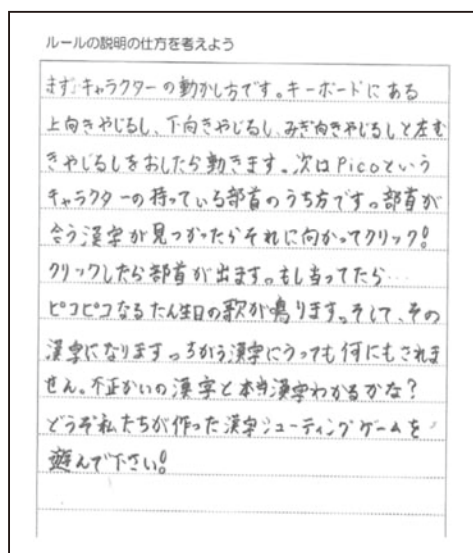 ルールの説明の仕方を考えよう
まずキャラクターの動かし方です。キーボードにある
上向きやじるし、下向きやじるし、みぎ向きやじるしと左む
きやじるしをおしたら動きます。次はPicoという
キャラクターの持っている部首のうち方です。部首が
合う漢字が見つかったらそれに向かってクリック!
クリックしたら部首が出ます。もし当ってたら…
ピコピコなるたん生日の歌が鳴ります。そして、その
漢字になります。ちがう漢字にうっても何にもされま
せん。不正かいの漢字と本当漢字わかるかな?
どうぞ私たちが作った漢字シューティングゲームを
遊んで下さい!